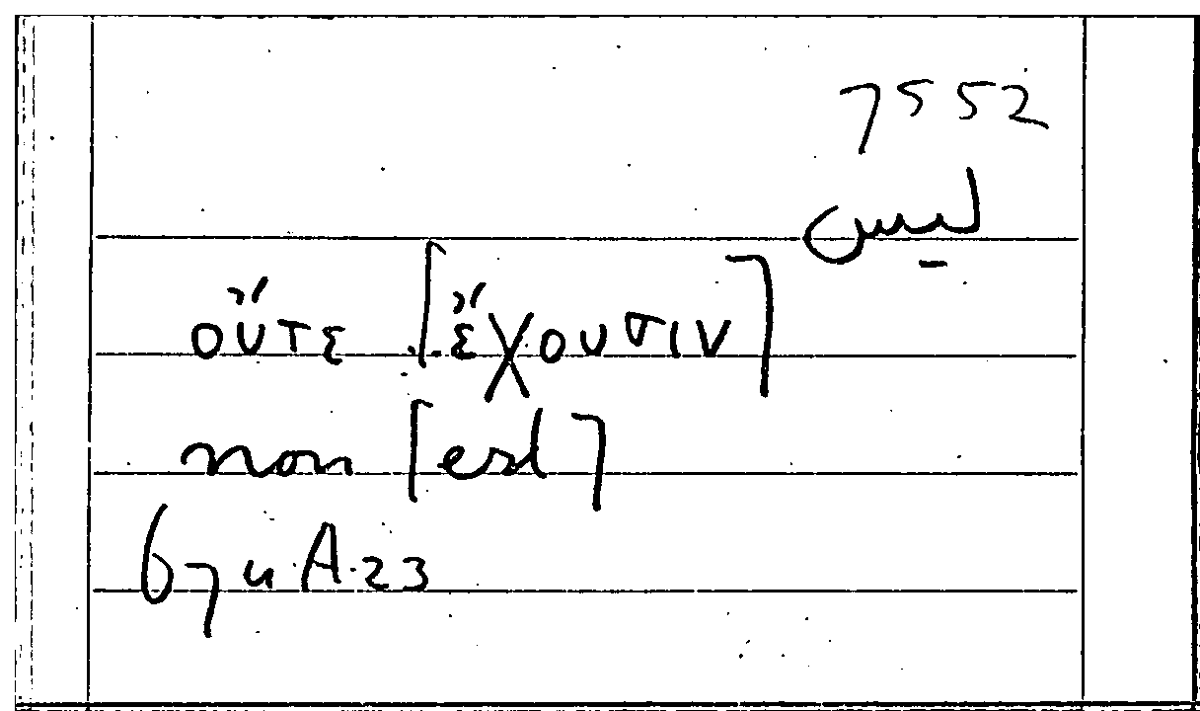 7552
ليس
οὔτε [ἔχουσιν]
non [est]
674 A.23